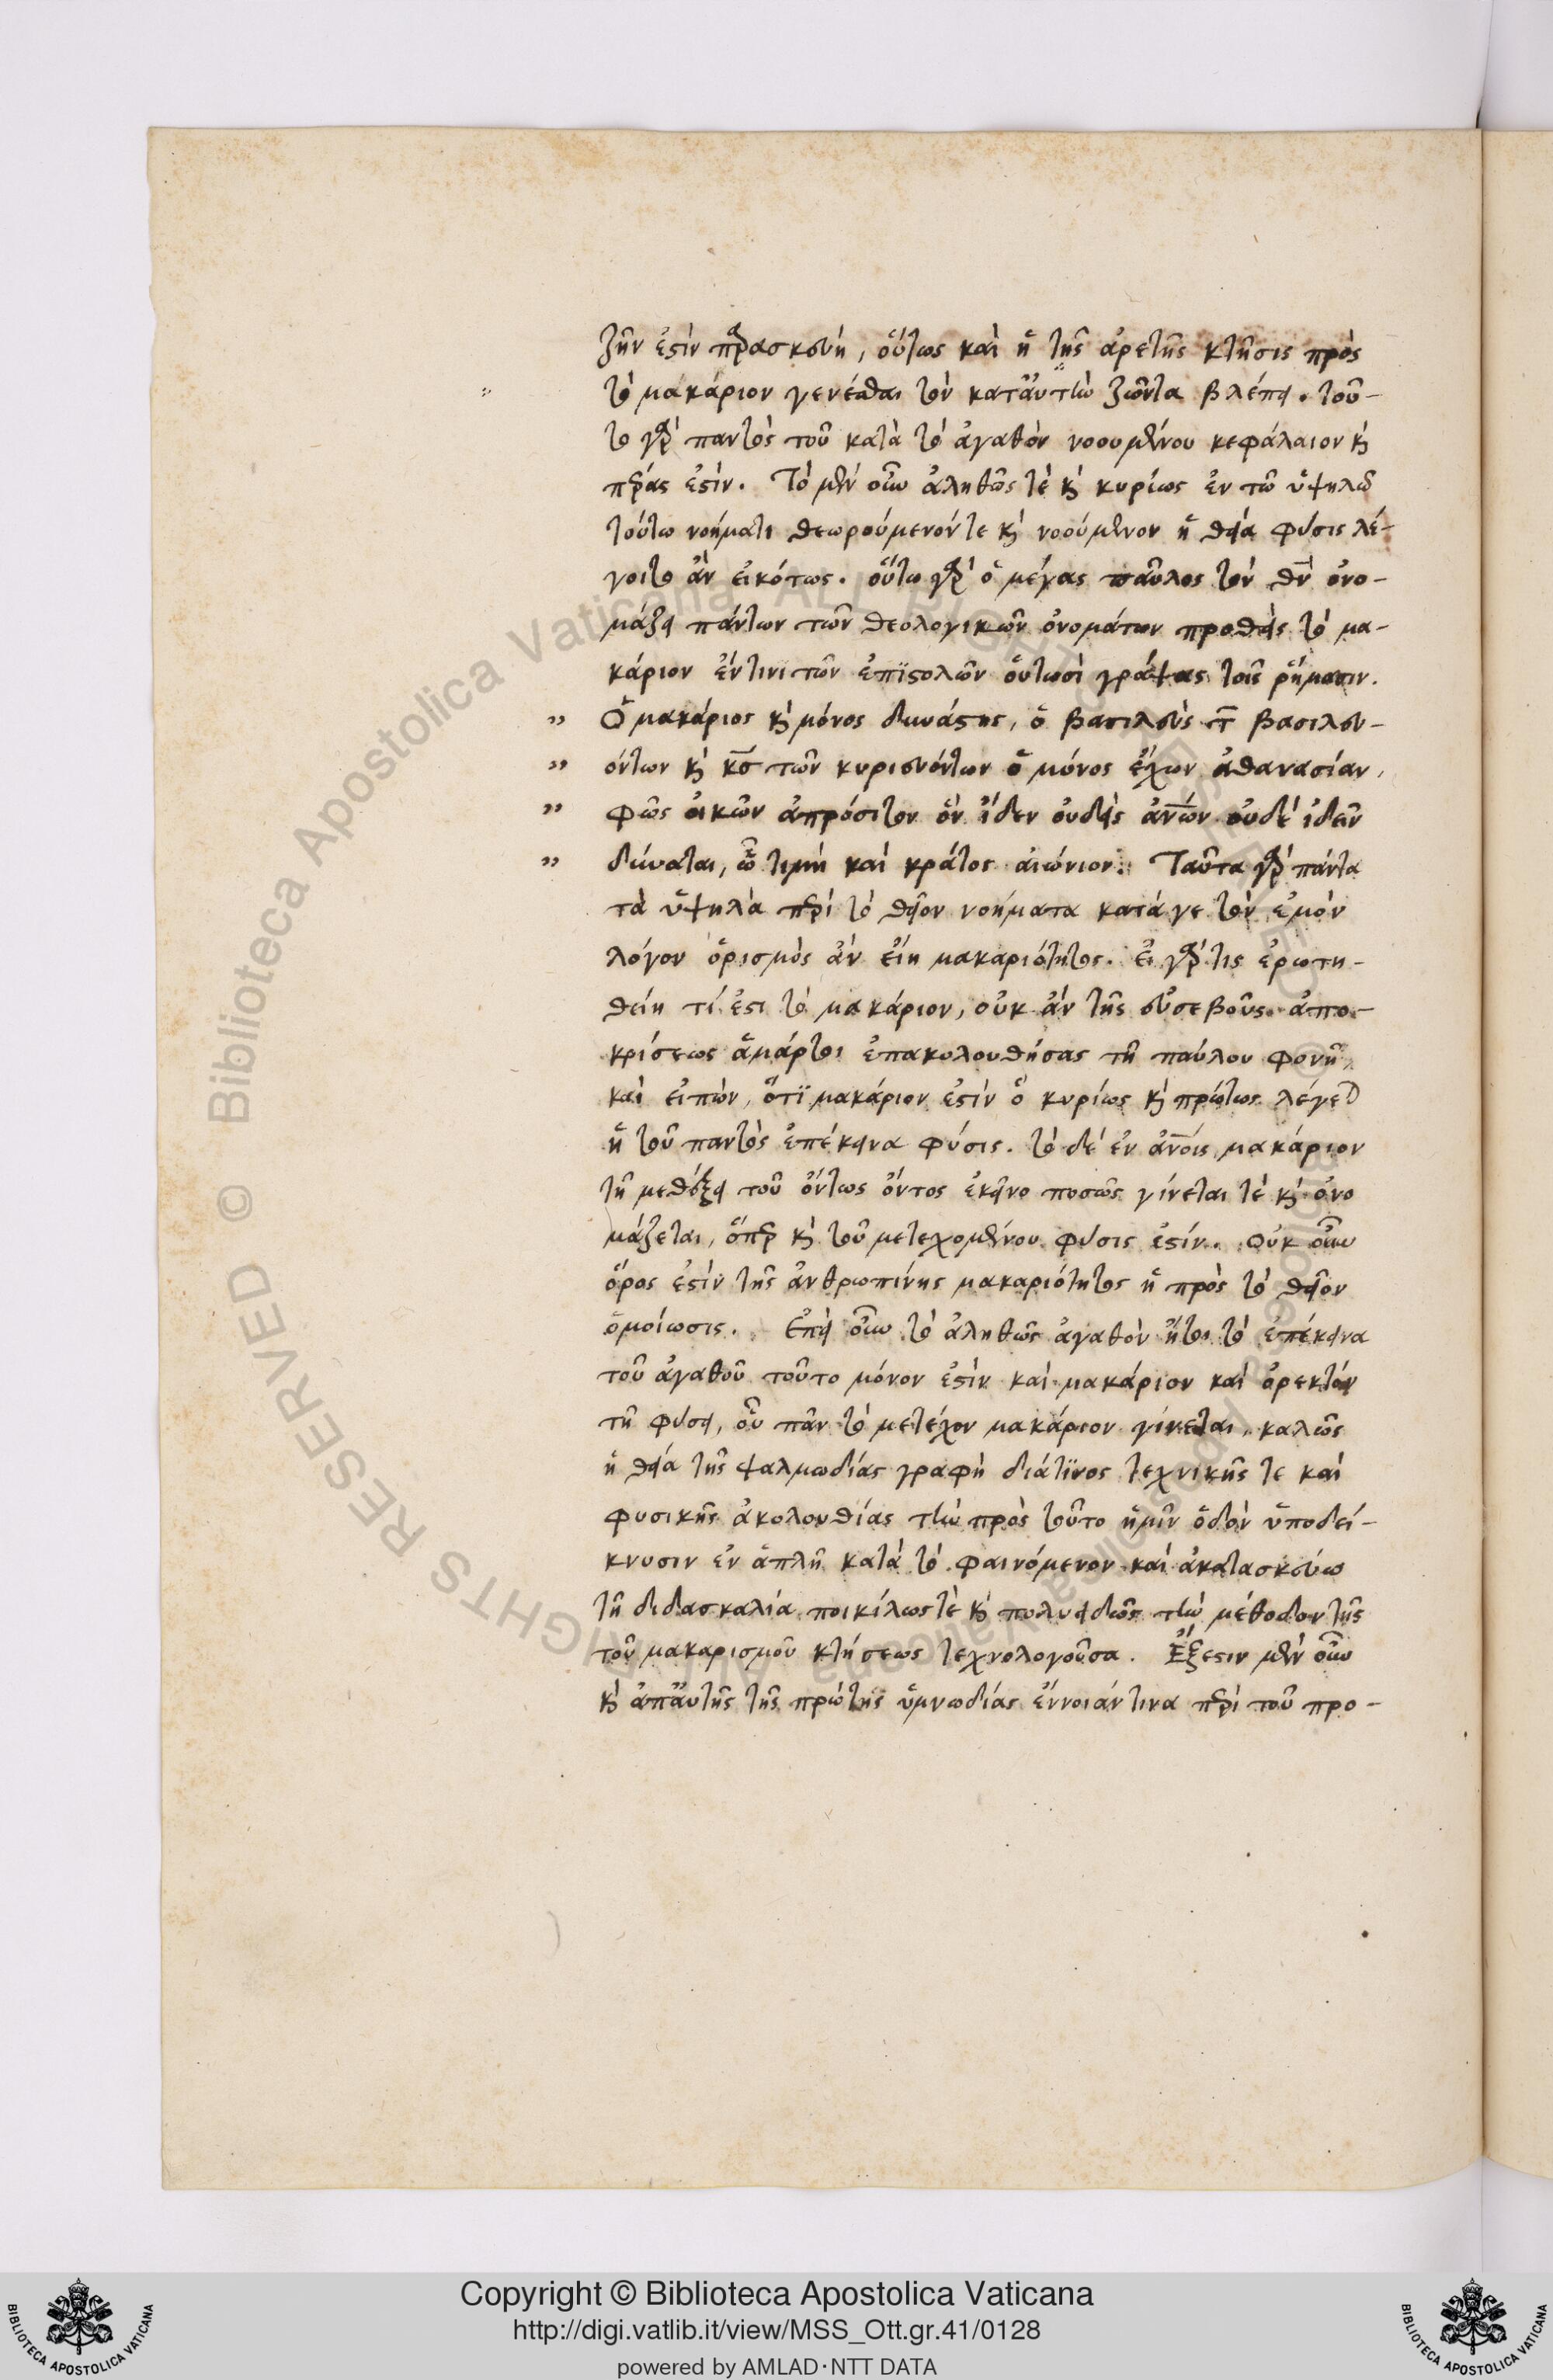 ζῆν ἐστὶν παρασκευὴ, οὕτως καὶ ἡ τῆς ἀρετῆς κτῆσις πρὸς
τὸ μακάριον γενέσθαι τὸν κατ᾽ἀυτὴν ζῶντα βλέπει. τοῦ-
το γὰρ παντὸς τοῦ κατὰ τὸ ἀγαθὸν νοουμένου κεφάλαιον κỳ
πέρας ἐστίν. Τὸ μὲν οὖν ἀληθῶς τὲ κỳ κυρίως ἐν τῶ ὑψηλῶ
τούτω νοήματι θεωρούμενόν τε κỳ νοούμενον ἡ θεία φύσις λέ-
γοιτο ἂν εἰκότως. οὕτω γὰρ ὁ μέγας παῦλος τὸν θν̅ ὀνο-
μάζει πάντων τῶν θεολογικῶν ὀνομάτων προθεὶς τὸ μα-
κάριον ἔν τινι τῶν ἐπϊστολῶν οὑτωσὶ γράψας τοῖς ῥήμασιν.
" Ὁ μακάριος κỳ μόνος δυνάστης, ὁ βασιλεὺς τ͂ βασιλευ-
" όντων κỳ κς̅ τῶν κυριευόντων ὁ μόνος ἔχων ἀθανασίαν,
" φῶς οἰκῶν ἀπρόσιτον ὃν ἴδεν ὀυδεὶς ἀν̅ων ὀυδὲ ἰδεῖν
" δύναται, ὧ τιμὴ καὶ κράτος αἰώνιον. Ταῦτα γὰρ πάντα
τὰ ὑψηλὰ περὶ τὸ θεῖον νοήματα κατά γε τὸν ἐμὸν
λόγον ὁρισμὸς ἂν εἴη μακαριότητος. εἰ γάρ τις ἐρωτη-
θείη τί ἐστι τὸ μακάριον, οὐκ ἂν τῆς εὐσεβοῦς ἀπο-
κρίσεως ἁμάρτοι ἐπακολουθήσας τῆ παύλου φονῆ,
καὶ εἰπὼν, ὅτϊ μακάριον ἐστὶν ὃ κυρίως κỳ πρώτως λέγεται
ἡ τοῦ παντὸς ἐπέκεινα φύσις. τὸ δὲ ἐν ἀν̅οις μακάριον
τῆ μεθέξει τοῦ ὄντως ὄντος ἐκεῖνο ποσῶς γίνεται τὲ κỳ ὀνο
μάζεται, ὅπερ κỳ τοῦ μετεχομένου φύσις ἐστίν. Οὐκ οὖν
ὅρος ἐστὶν τῆς ἀνθρωπίνης μακαριότητος ἡ πρὸς τὸ θεῖον
ὁμοίωσις. Ἐπεὶ οὖν τὸ ἀληθῶς ἀγαθὸν ἤτοι τὸ ἐπέκεινα
τοῦ ἀγαθοῦ τοῦτο μόνον ἐστὶν καὶ μακάριον καὶ ὀρεκτὸν
τῆ φύσει, οὗ πᾶν τὸ μετέχον μακάριον γίνεται, καλῶς
ἡ θεία τῆς ψαλμωδίας γραφὴ διά τϊνος τεχνικῆς τε καὶ
φυσικῆς ἀκολουθίας τὴν πρὸς τοῦτο ἡμῖν ὁδὸν ὑποδεί-
κνυσιν ἐν ἁπλῆ κατὰ τὸ φαινόμενον καὶ ἀκατασκεύω
τῆ διδασκαλία ποικίλως τὲ κỳ πολυειδῶς τὴν μέθοδον τῆς
τοῦ μακαρισμοῦ κτήσεως τεχνολογοῦσα. Ἔξεστιν μὲν οὖν
κỳ ἀπ᾽ἀυτῆς τῆς πρώτης ὑμνωδίας ἔννοιάν τινα περὶ τοῦ προ-
Copyright © Biblioteca Apostolica Vaticana
http://digi.vatlib.it/view/MSS_Ott.gr.41/0128
powered by AMLAD·NTT DATA